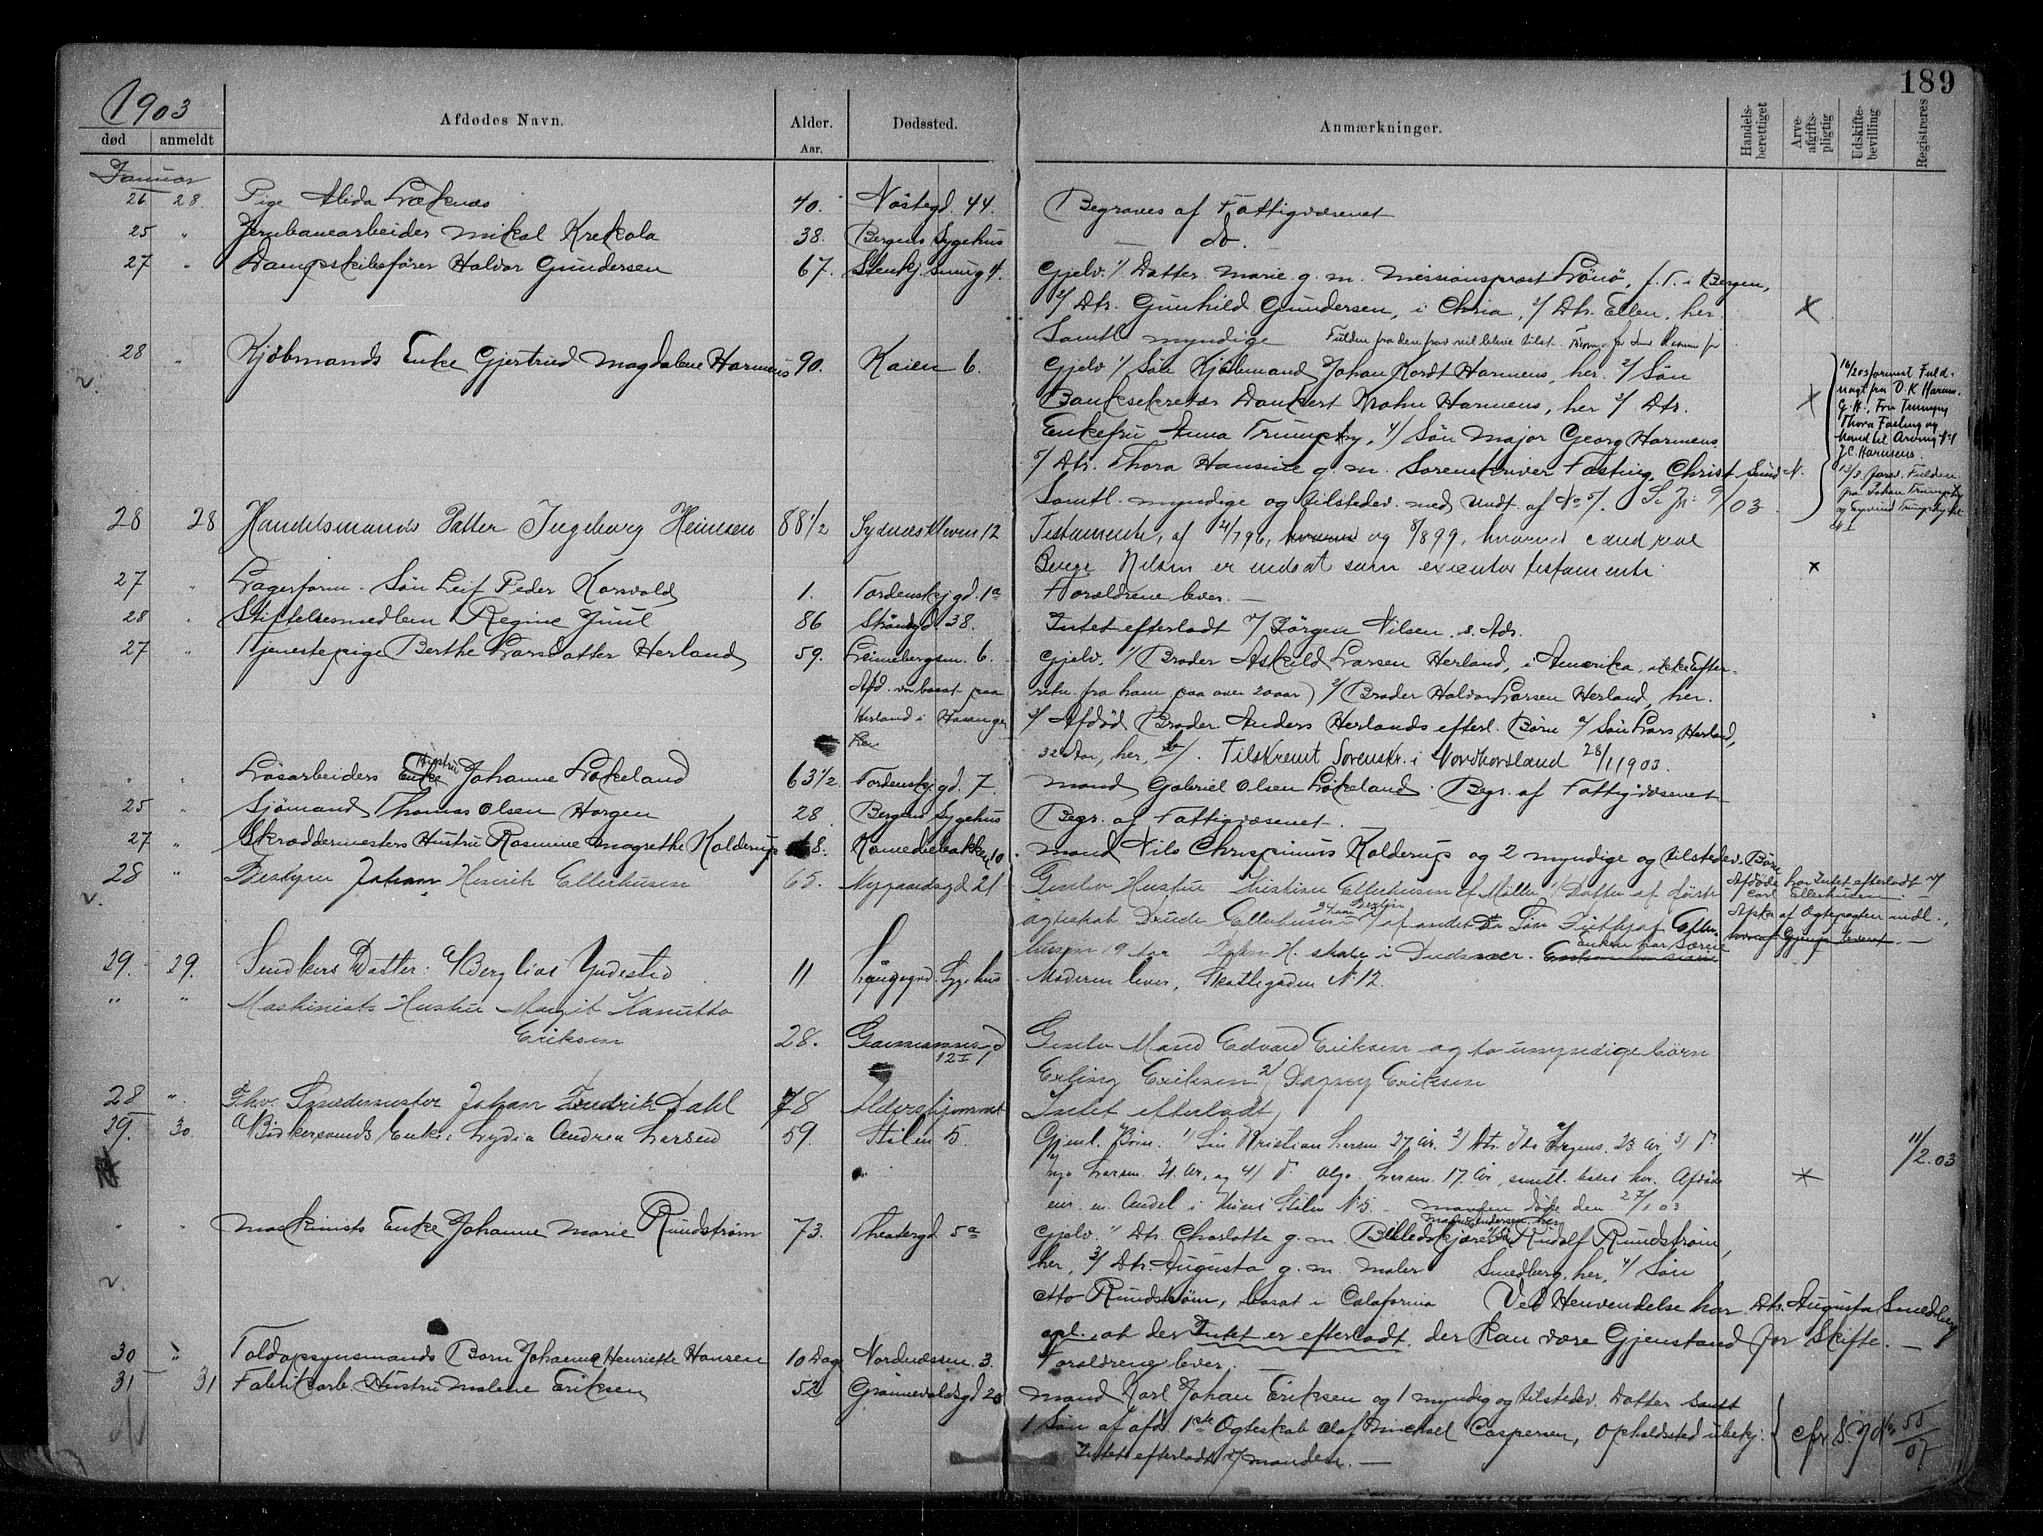 189
1903
død anmeldt Afdødes Navn. Alder. Aar. Dødssted. Anmærkninger. Handelsberettiget Arveafgiftspligtig Udskiftebevilling Registreres
Januar
26 28. Pige Alida Læknæs 40. Nöstegd. 44. Begraves af Fattigvæsenet
25 " Jernbanearbeider Mikal Krekola 38. Bergens Sygehus — do. —
27 " Dampskibsfører Halvor Gundersen 67. Stenkj.smug 4. Gjelv. 1/ Datter Marie g. m. Missionsprest Lönö, f. T. i Bergen,
2/ Dtr. Gunhild Gundersen, i Chria, 3/ Dtr. Ellen, her.
Samtl. myndige
28 " Kjöbmands Enke Gjertrud Magdalene Harmens 90. Kaien 6. Gjelv 1/ Sön Kjöbmand Johan Kordt Harmens, her. 2/ Sön
Banksekretær Dankert Krohn Harmens, her 3/ Dtr.
Enkefru Anna Trumpy, 4/ Sön Major Georg Harmens
5/ Dtr. Thora Hansine g. m. Sorenskriver Fasting, Christ.sund N.
Samtl. myndige og tilstedev. med Undt. af No 5/. S. Jr. 9/03
16/2 03 fremst Fuldmagt fra D. K. Harmens.
G. H., Fru Trumpy
Thora Fasting og
Mand til Arving No 1
J. C. Harmens.
28 28 Handelsmands Datter Ingeborg Heimsen 88 1/2 Sydnæskleven 12 Testamente, af 21/7 96, og 8/8 99, hvorved cand real
Berge Nilsen er indsat som executor testamenti
27 " Lagerform. Sön Leif Peder Korsvold 1. Tordenskj.gd. 1a Forældrene lever. —
28 " Stiftelsesmedlem Regine Juul 86 Strandgd. 38. Intet efterladt v/ Jörgen Nilsen. s. Ads.
27 " Tjenestepige Berthe Larsdatter Herland 59. Leinebergsm. 6. Gjelv. 1/ Broder Askild Larsen Herland, i Amerika, ikke Efter-
Afd. var bosat paa retn. fra ham paa over 20 aar) 2/ Broder Halvor Larsen Herland, her.
Herland i Havanger 3/ Afdød Broder Anders Herlands efterl. Børn a/ Sön Lars Herland,
32 Aar, her, b/. Tilskrevet Sorenskr. i Nordhordland 28/1 1903.
" " Lösarbeiders Hustru Johanne Lökeland 63 1/2 Tordenskj.gd. 7. Mand Gabriel Olsen Lökeland. Begr. af Fattigvæsenet
25 " Sjömand Thomas Olsen Horgen 28 Bergens Sygehus Begr. af Fattigvæsenet.
27 " Skræddermesters Hustru Rasmine Magrethe Kolderup 68. Komediebakken 10. Mand Nils Chrispinus Kolderup og 2 myndige og tilstedev. Børn
28 " Bestyrer Johan Henrik Ellerhusen 65. Nygaardsgd 21 Gjenlev Hustru Kristine Ellerhusen f. Møller 1/ Datter af første
ægteskab Drude Ellerhusen 2/ af andet Do Søn Fridthjof Eller-
husen 19 Aar
Afdøde har Intet efterladt v/
Carl Ellerhusen.
29. 29. Snedkers Datter: Bergliot Yndestad 11 Lungegrd. Sygehus Moderen lever, Skottegaden N. 12.
" " Maskinists Hustru Margit Kanutta
Eriksen 28. 12 I Gjenlev Mand Edvard Eriksen og to umyndige børn
Erling Eriksen 2/ Dagny Eriksen
28 " Fhv. Smedemester Johan Fredrik Dahl 78 Aldershjemmet Intet efterladt,
29. 30. Bødkersvends Enke: Lydia Andrea Larsen 59. Stölen 5. Gjenl. Børn: 1/ Sön Kristian Larsen 27 Aar, 2/ Dtr. 23 Aar 3/ D.
Larsen 21. Aar, og 4/ D. Olga Larsen 17 Aar, samtl. bosat her. Afdøde
eier en Andel i Huset Stölen N. 5. — Manden døde den 27/1 03. 11/2. 03
" " Maskinists Enke Johanne Marie Rundström 73. Theatergd. 5a Gjelv. 1/ Dtr. Charlotte g. m. Billedskjærer Rudolf Rundström,
her, 3/ Dtr. Augusta g. m. Maler Smedberg, her, 4/ Sön
Otto Rundström, bosat i Calafornia Ved Henvendelse har Dtr. Augusta Smedberg
opl. at der Intet er efterladt, der kan være Gjenstand for Skifte. —
30 " Toldopsynsmands Barn Johanne Henriette Hansen 10 Dage Nordnæssen. 3. Forældrene lever. —
31 31 Fabrikarb. Hustru Malene Eriksen 52 Grönnevoldsgd 20 Mand Karl Johan Eriksen og 1 myndig og tilstedev. Datter samt
1 Sön af afd. 1ste Ægteskab Olaf Michael Caspersen, opholdssted ubekj.
Intet efterladt v/ manden. — cfr. 55/07